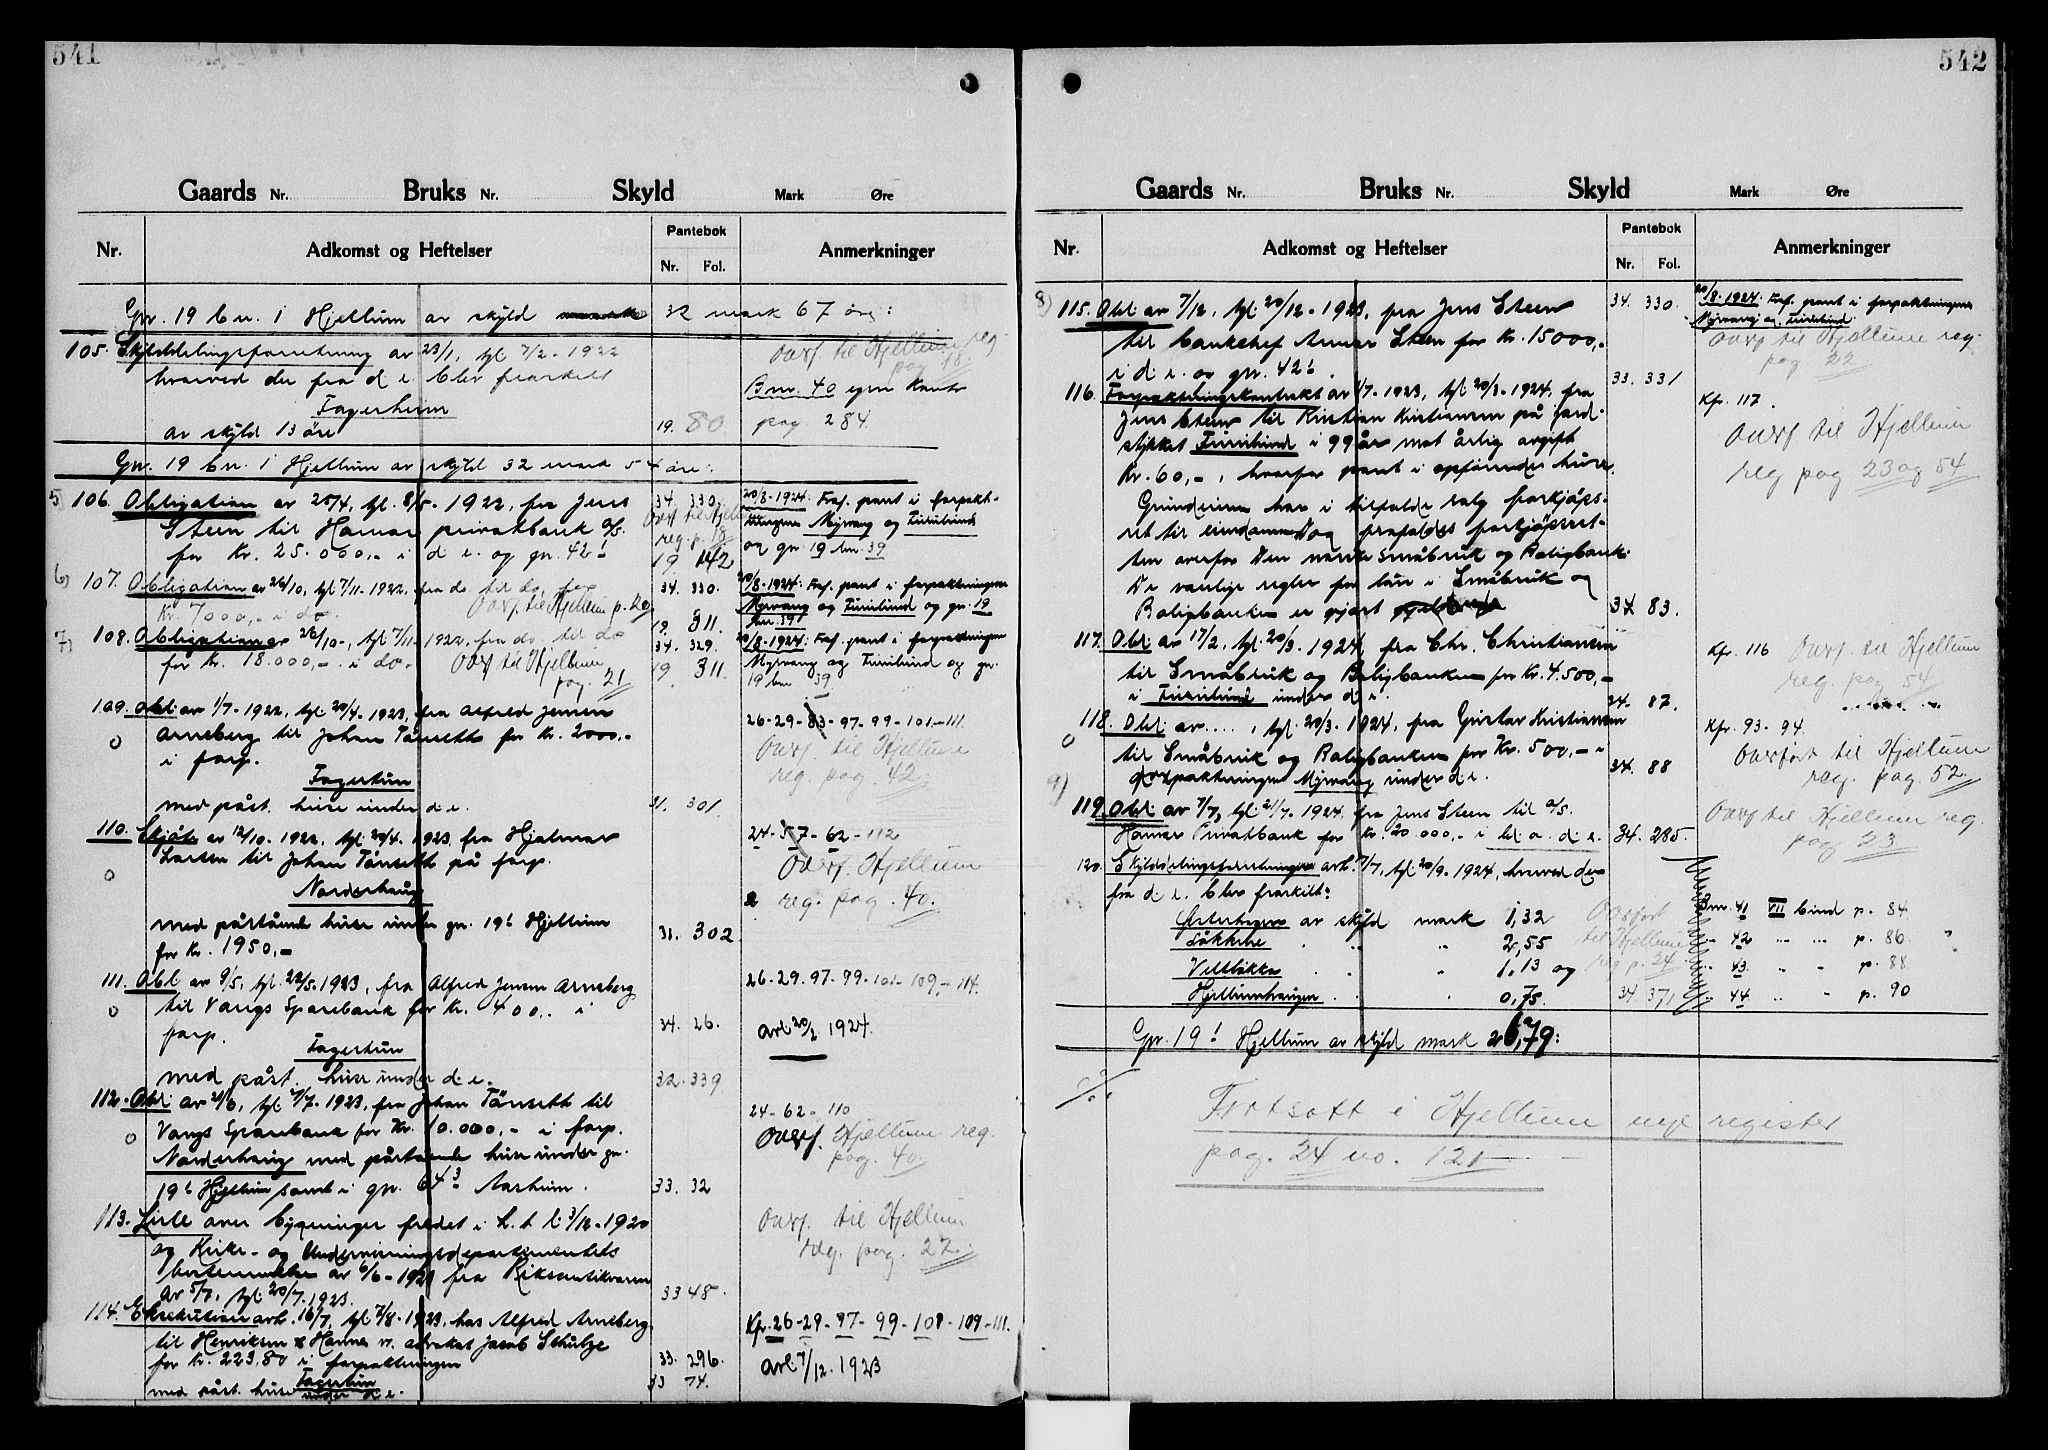 541
Gaards Nr. Bruks Nr. Skyld Mark Øre
Nr. Adkomst og Heftelser Pantebok Nr. Fol. Anmerkninger
Gnr. 19 bn. 1 Hjellum av skyld 32 mark 67 øre:
105. Skylddelingsforretning av 23/1, tgl. 7/2 - 1922
hvorved der fra d. e. blev fraskilt
Fagerheim
av skyld 13 øre 19. 80
Overf. til Hjellum reg.
pag 18.
Bnr. 40 egen konto
pag 284.
Gnr. 19 bn. 1 Hjellum av skyld 32 mark 54 øre:
5) 106. Obligation av 25/4, tgl. 8/5 - 1922, fra Jens
Steen til Hamar privatbank a/s.
for kr. 25.000,- i d. e. og gn. 42¹
34. 330.
Overf. til Hjell.
reg. p. 18
19 142
20/8-1924: Fraf. pant i forpakt-
ningen Myrvang og Furulund
og gn. 19 bn. 39
6) 107. Obligation av 26/10, tgl 7/11 - 1922, fra do til do, for
kr. 7000,- i do.
Overf. til Hjellum p. 20
34. 330.
19. 311.
20/8-1924: Fraf. pant i forpaktningene
Myrvang og Furulund og gn. 19
bn. 39
7) 108. Obligation av 26/10-, tgl 7/11 1922, fra do. til do
for kr. 18.000,- i do-
Overf til Hjellum
pag. 21
34. 329.
19 311.
20/8-1924: Fraf. pant i forpaktningene
Myrvang og Furulund og gn.
19 bn 39.
109. Obl. av 1/7 - 1922, tgl. 20/4 - 1923, fra Alfred Jensen
Arneberg til Johan Tånseth for kr. 2000,-
i forp.
Fagertun
med påst. huse under d. e. 31. 301.
26-29-83-97-99-101-111.
Overf. til Hjellum
reg. pag. 42.
110. Skjøte av 12/10 - 1922, tgl. 20/4. 1923, fra Hjalmar
Larsen til Johan Tånseth på forp.
Norderhaug
med påstående huse under gn. 19¹ Hjellum
for kr. 1950,- 31. 302
24-57-62-112
Overf. Hjellum
reg. pag. 40.
111. Obl av 9/5, tgl. 22/5-1923, fra Alfred Jensen Arneberg
til Vangs Sparebank for kr. 400,- i
forp. 34. 26.
Fagertun
med påst. huse under d. e. 32. 339
26-29-97-99-101-109-114.
avl. 20/2 1924.
112. Obl. av 2/6, tgl. 7/7 - 1923, fra Johan Tånseth til
Vangs Sparebank for kr. 10.000,- i forp.
Norderhaug med påstående huse under gn.
19¹ Hjellum samt i gn. 64³ Aarheim. 33. 32
24-62-110
Overf. Hjellum reg.
pag. 40.
113. Liste over bygninger fredet i h. t. l. 3/12-1920
og Kirke- og Undervisningsdepartementets
bestemmelse av 6/6-1921 fra Riksantikvaren
av 5/7, tgl. 20/7. 1923. 33 48.
Overf. til Hjellum
reg. pag. 27.
114. Eksekution avh. 16/7, tgl. 7/8-1923, hos Alfred Arneberg
til Henriksen & Hannes v. advokat Jacob Schulze
for kr. 223,80 i forpaktningen
Fagertun
med påst. huse under d. e.
33. 296.
33 74.
Kfr. 26-29-97-99-101-109-111.
avl. 7/12. 1923
542
Gaards Nr. Bruks Nr. Skyld Mark Øre
Nr. Adkomst og Heftelser Pantebok Nr. Fol. Anmerkninger
8) 115. Obl. av 7/12, tgl. 20/12-1923, fra Jens Steen
til banksjef Steen for kr. 15000,-
i d. e. og gn. 42¹.
34. 330.
20/8-1924: Fraf. pant i forpaktningene
Myrvang og Furulund.
Overf til Hjellum reg.
pag. 22
116. Forpaktningskontrakt av 1/7-1923, tgl. 20/3-1924, fra
Jens Steen til Kristian Kristiansen på jord-
stykket Furulund i 99 år mot årlig avgift
kr. 60,-, hvorfor pant i opførendes huse.
Grundeieren har i tilfælde salg forkjøps-
ret til eiendommen og frafaldes forkjøpsret-
ten overfor Den norske Småbruk og Boligbank.
De vanlige regler for lån i Småbruk og
Boligbanken er gjort
33. 331
34 83.
Kfr. 117.
Overf til Hjellum
reg pag 23 og 54
117. Obl. av 17/2, tgl. 20/3-1924, fra Chr. Christiansen
til Småbruk og Boligbanken for kr. 4.500,-
i Furulund under d. e. 34. 87.
Kfr. 116
Overf. til Hjellum
reg. pag. 54
118. Obl. av...., tgl. 20/3-1924, fra Gustav Kristiansen
til Småbruk og Boligbanken for kr. 500,- i
forpaktningen Myrvang under d. e. 34. 88
Kfr. 93-94.
Overført til Hjellum
reg. pag. 52.
9) 119. Obl. av 7/7, tgl. 21/7-1924, fra Jens Steen til a/s.
Hamar Privatbank for kr. 20.000,- i bl. a. d. e. 34. 285.
Overf til Hjellum reg.
pag 23
120. Skylddelingsforretninger avh. 7/7, tgl. 20/9-1924, hvorved der
fra d. e. blev fraskilt:
Østerhagen av skyld mark 1,32
Løkkene " 2,55
Veltløkka " 1,13 og
Hjellumhaugen " 0,75.
Overført
til Hjellum
reg p. 24
34. 371
Bnr. 41 VII bind p. 84.
" 42 " " p. 86.
" 43 " " p. 88
" 44 " " p. 90
Gn. 19¹ Hjellum av skyld mark 26,79:
Fortsatt i Hjellum nye register
pag. 24 no. 121